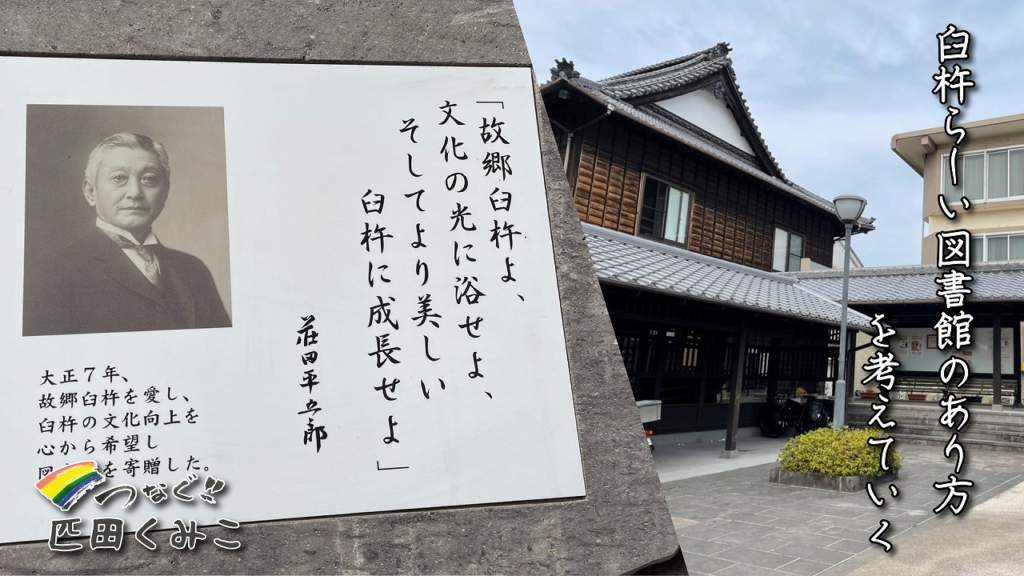 「故郷臼杵よ、
文化の光に浴せよ、
そしてより美しい
臼杵に成長せよ」
荘田平五郎
大正7年、
故郷臼杵を愛し、
臼杵の文化向上を
心から希望し
図を寄贈した。
つなぐ!!
匹田くみこ
臼杵らーしい図書館のあり方
を考えていく